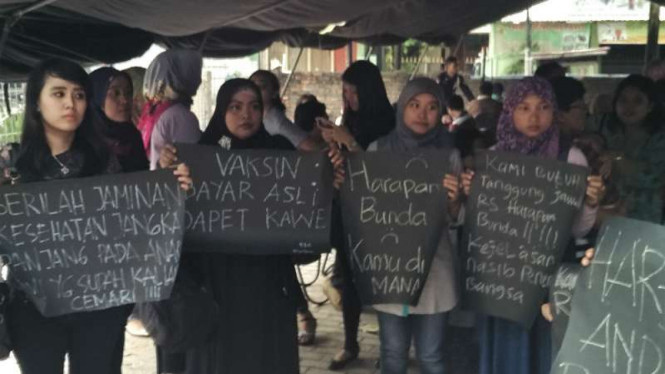 BERILAH JAMINAN
KESEHATAN JANGKA
PANJANG PADA ANAK
YG SUDAH KALIAN
CEMARI !!!!
VAKSIN :
BAYAR ASLI
DAPET KAWE
Harapan
Bunda
Kamu di
MANA
KAMI BUTUH
Tanggung Jawab
RS Harapan
Bunda !!!!!
Kejelasan
nasib Penerus
Bangsa
HAR
AND